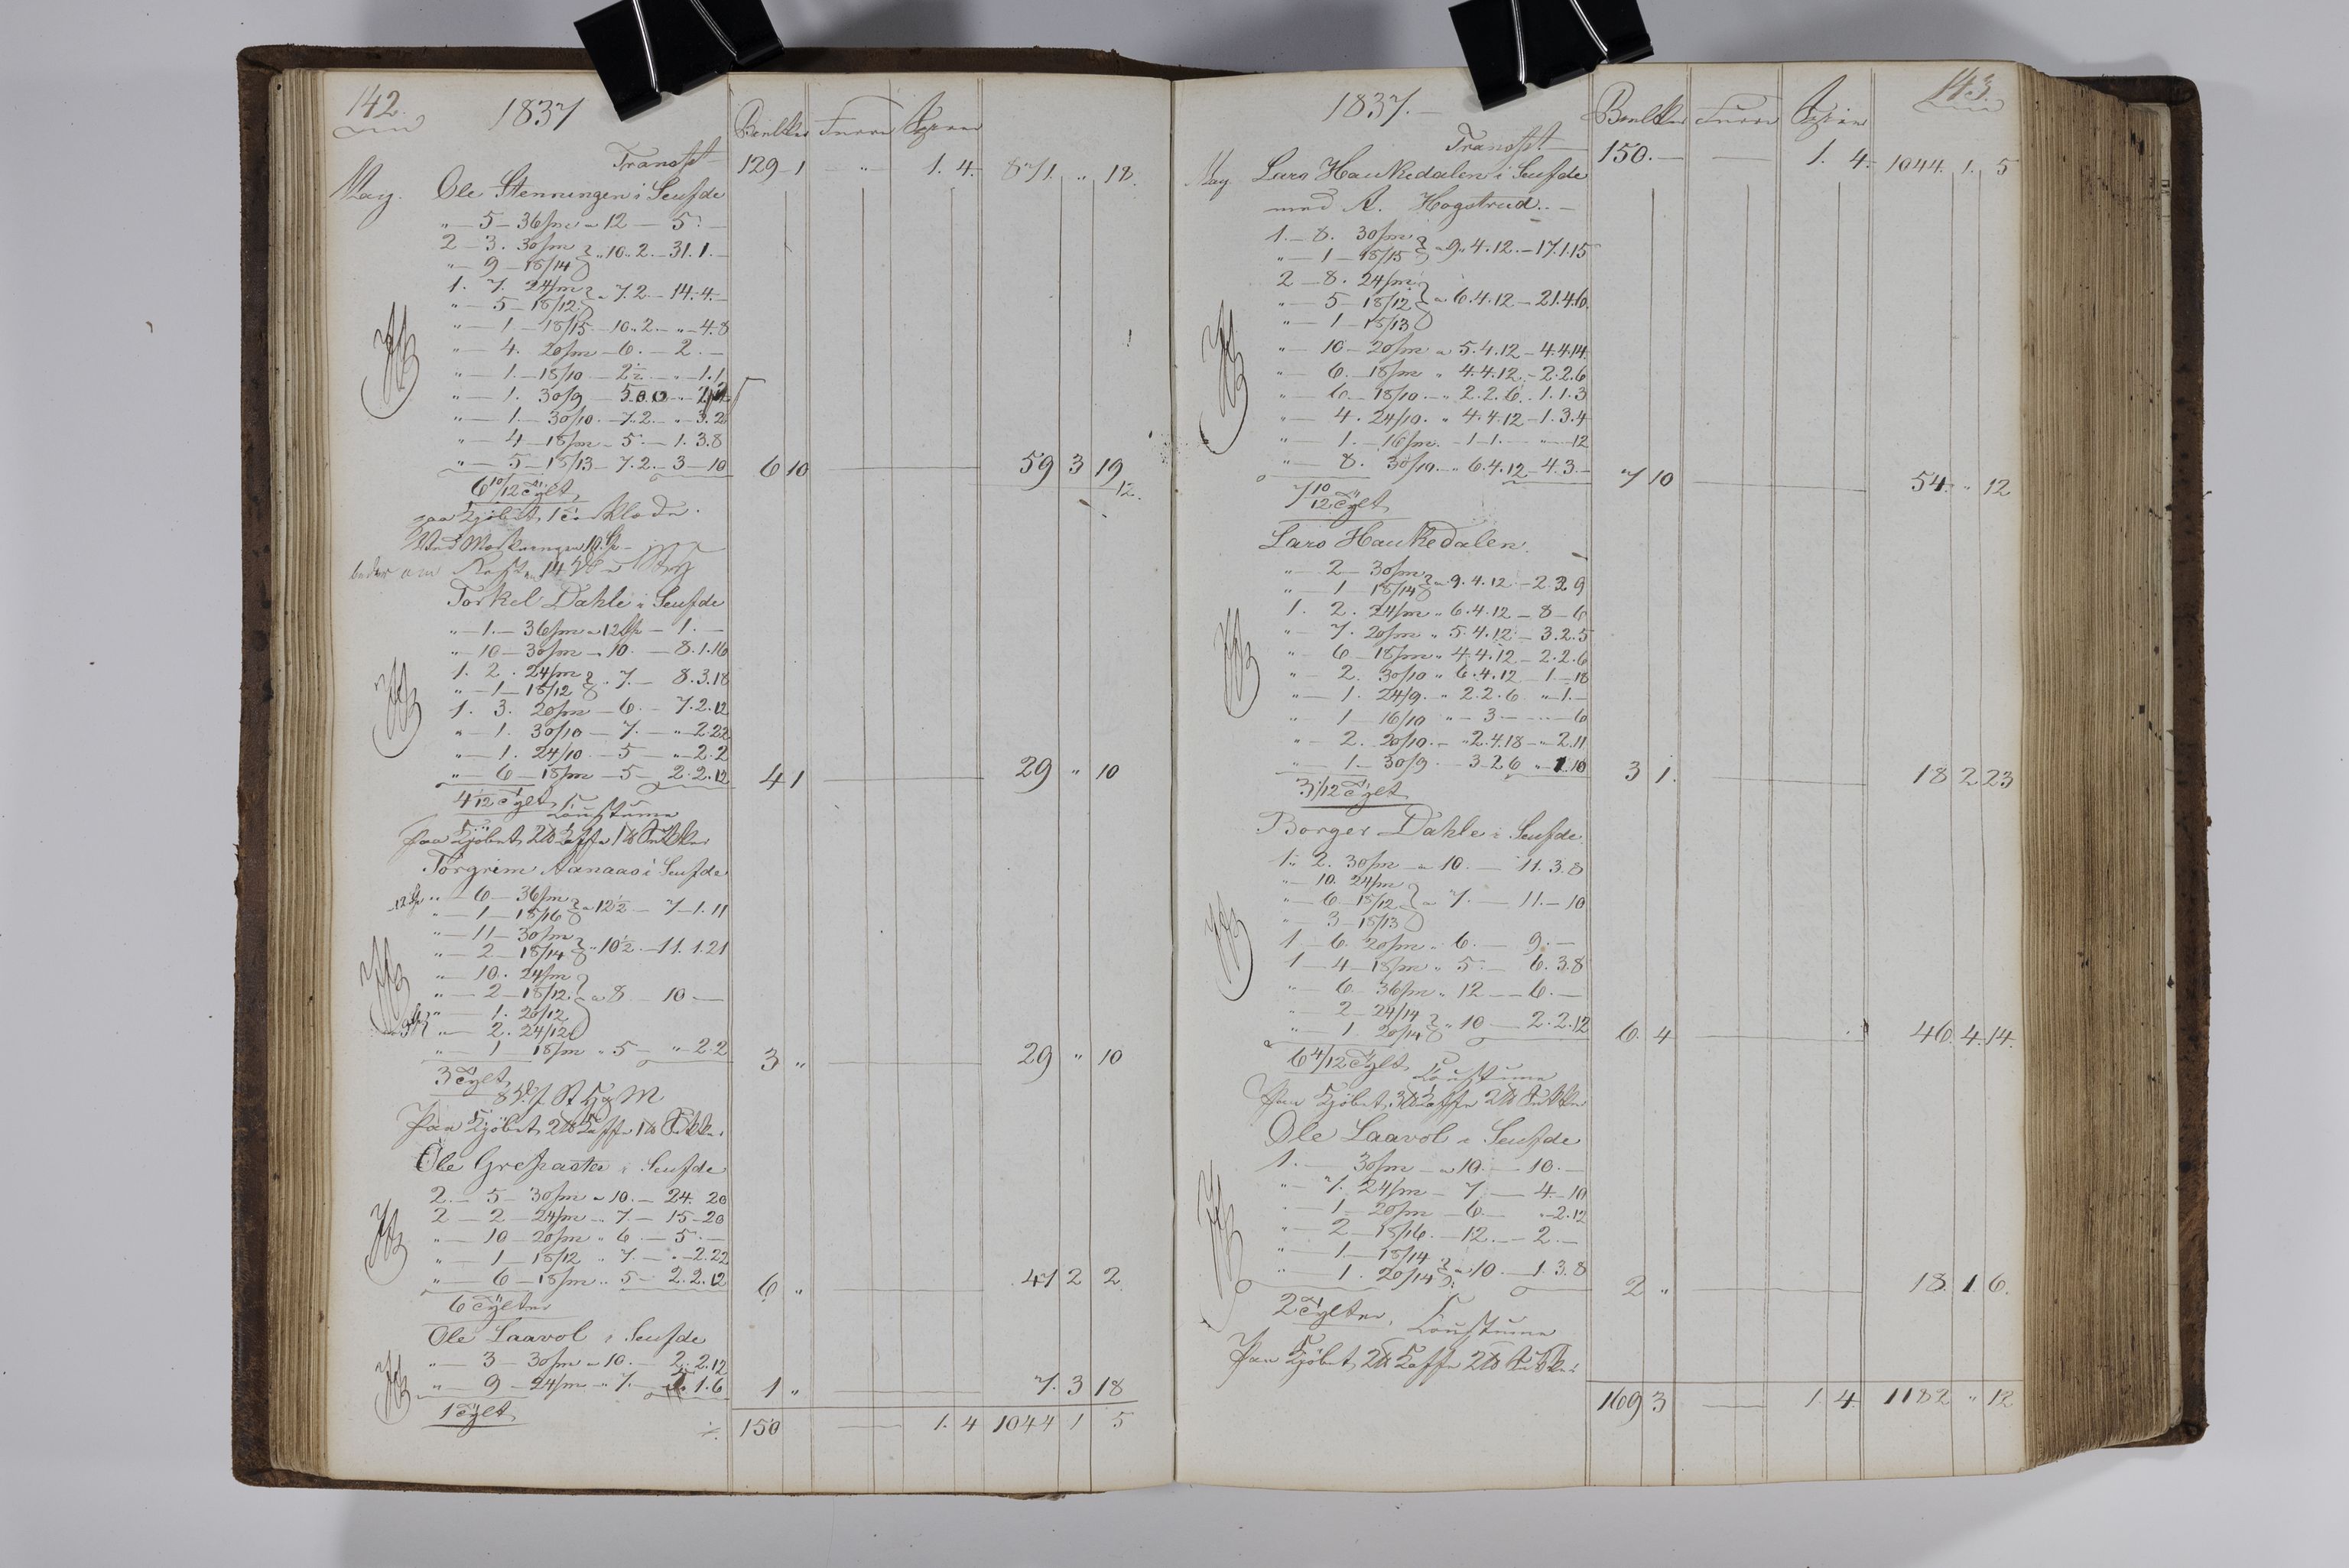 142.
1837
Transpt
129 1 " 1. 4. 871. " 18.
May. Ole Stenningen i Seufde
" — 5 — 36/m a 12 — 5. —
2 — 3. 30/m
" — 9 — 18/14 " 10. 2. — 31. 1. —
1. 7. 24/m
" — 5 — 18/12 a 7. 2 — 14. 4. —
" — 1. — 18/15 — 10. 2. — " — 4. 8
" — 4. 20/m — 6. — 2. —
" — 1. — 18/10 — 2½ — " — 1. 1
" — 1. 30/9
" — 1. — 30/10 — 7. 2. — " — 3. 2
" — 4 — 18/m — 5 — 1. 3. 8
" — 5 — 18/13 — 7. 2. — 3 — 10 6 10 59 3 19
12.
6 10/12 Tylt
Torkel Dahle i Seufde
" — 1. — 36/m a 12 — 1. —
" — 10 — 30/m — 10. — 8. 1. 16
1. 2. 24/m
" — 1 — 18/12 " 7. — 8. 3. 18
1. 3. 20/m — 6. — 7. 2. 12
" — 1. 30/10 — 7. — " — 2. 22
" — 1. 24/10 — 5 — " — 2. 2
" — 6 — 18/m — 5 — 2. 2. 12 4 1 29 " 10
4 1/12 Tylt
paa Kjöbet 2 ℔ Kaffe 1 ℔ Sukker
Torgrim Aanaas i Seufde
" — 6 — 36/m
" — 1 — 18/16 a 12½ — 7 — 1. 11
" — 11 — 30/m
" — 2 — 18/14 " 10½ — 11. 1. 21
" — 10. 24/m
" — 2 — 18/12 a 8 — 10 —
" — 1. 20/12
" — 2. 24/12
" — 1 — 18/m " 5 — " — 2. 2 3 " 29 " 10
3 Tylt
Paa Kjöbet 2 ℔ Kaffe 1 ℔ Sukker
Ole Grefaster i Seufde
2. — 5 — 30/m a 10. — 24. 20
2 — 2 — 24/m " 7. — 15 — 20
" — 10 — 20/m " 6 — 5. —
" — 1 — 18/12 " 7. — " — 2. 22
" — 6 — 18/m " 5 — 2. 2. 12 6 " 41 2 2
6 Tylter
Ole Laavol i Seufde
" — 3 — 30/m a 10. — 2. 2. 12
" — 9 — 24/m " 7. — 5. 1. 6 1 " 7. 3 18
1 Tylt
150 1. 4 1044 1 5
143.
1837. —
Transpt
150. — 1. 4. 1044. 1. 5
May Lars Haukedalen i Seufde
med A. Hogstrud. —
1. — 8. 30/m
" — 1 — 18/15 a 9. 4. 12. — 17. 1. 15
2 — 8. 24/m
" — 5 — 18/12 a 6. 4. 12 — 21. 4. 6
" — 1 — 18/13
" — 10 — 20/m a 5. 4. 12 — 4. 4. 14
" — 6. — 18/m " 4. 4. 12. — 2. 2. 6
" — 6 — 18/10 — " 2. 2. 6. 1. 1. 3
" — 4. 24/10. " 4. 4. 12 — 1. 3. 4
" — 1. — 16/m. — 1. 1. — " — 12
" — 8. 30/10 — " 6. 4. 12 — 4. 3. — 7 10 54. " 12
7 10/12 Tylt
Lars Haukedalen.
" — 2 — 30/m
" — 1 18/14 a 9. 4. 12 — 2. 2. 9
1. 2. 24/m " 6. 4. 12 — 8 — 6
" — 7. 20/m " 5. 4. 12 — 3. 2. 5
" — 6 — 18/m " 4. 4. 12 — 2. 2. 6
" — 2. 30/10 " 6. 4. 12 — 1. — 18
" — 1. 24/9. — " 2. 2. 6 " — 1. —
" — 1 — 16/10 " — 3. — " — 6
" — 2. 20/10. — " 2. 4. 18 — " 2. 11
" — 1 — 30/9 — 3. 2. 6 " 1. 10 3 1. 18 2 23
3 1/12 Tylt
Borger Dahle i Seufde
1 " 2. 30/m a 10. — 11. 3. 8
" — 10. 24/m
" — 6 — 18/12 a 7. — 11. — 10
" — 3 — 18/13
1 — 6. 20/m " 6. — 9. —
1 — 4 — 18/m " 5. — 6. 3. 8
" — 6 — 36/m " 12 — 6. —
" — 2 — 24/14
" — 1. 20/14 " 10 — 2. 2. 12 6. 4 46. 4. 14.
6 4/12 Tylt
Paa Kjöbet 3 ℔ Kaffe 2 ℔ Sukker
Ole Laavol i Seufde
1. — 30/m — a 10. — 10. —
" — 7. 24/m — 7 — 4. — 10
" — 1 — 20/m — 6. — " — 2. 12
" — 2 — 18/16 — 12. — 2. —
" — 1. — 18/14
" — 1. 20/14 a 10. — 1. 3. 8 2 " 18. 1 6.
2 Tylter,
Paa Kjöbet 2 ℔ Kaffe 2 ℔ Sukker
169 3 1. 4. 1182 " 12